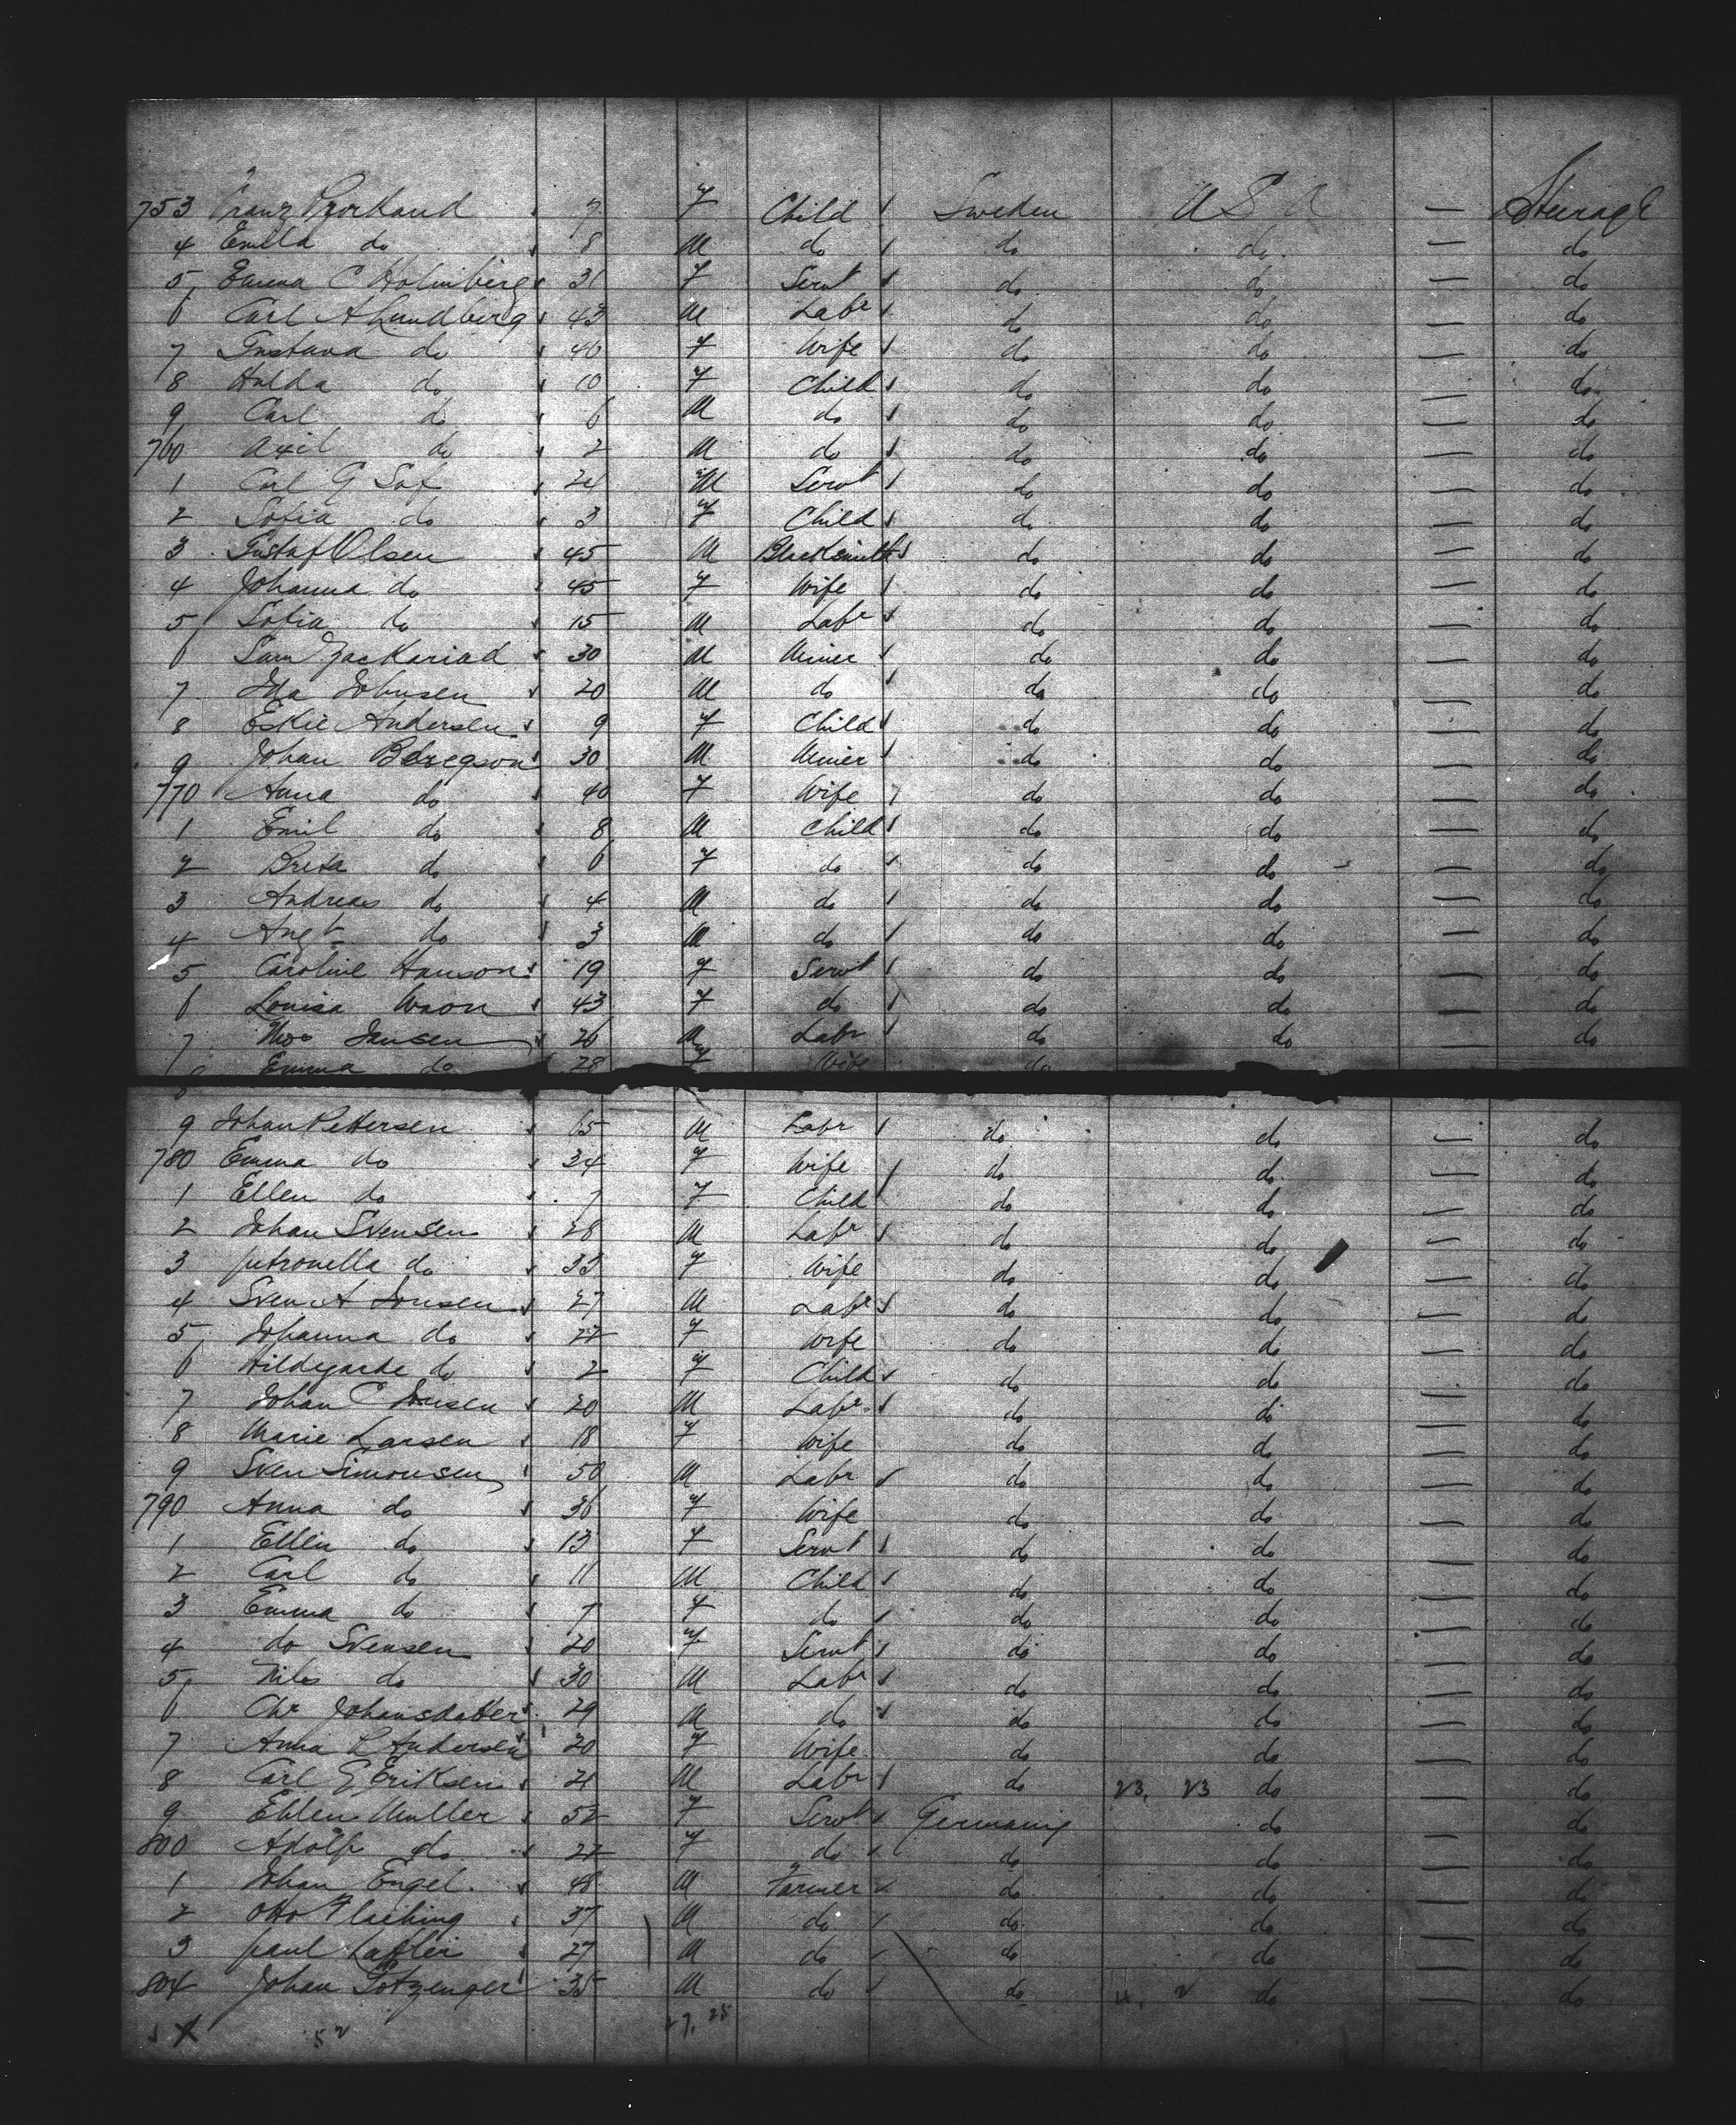 753 Franz Bjorkand 7 F Child Sweden U S A — Steerage
4 Emilda do 8 M do do do — do
5 Emma C Holmberg 31 F Servt do do — do
6 Carl A Lundberg 43 M Labr do do — do
7 Gustava do 40 F Wife do do — do
8 Hulda do 10 F Child do do — do
9 Carl do 6 M do do do — do
760 Axil do 2 M do do do — do
1 Carl G Saf 24 M Servt do do — do
2 Sofia do 3 F Child do do — do
3 Gustaf Olsen 45 M Blacksmith do do — do
4 Johanna do 45 F Wife do do — do
5 Sofia do 15 M Labr do do — do
6 Sam Zackariad 30 M Miner do do — do
7 Ida Johnsen 20 M do do do — do
8 Eskie Andersen 9 F Child do do — do
9 Johan 30 M Miner do do — do
770 Anna do 40 F Wife do do — do
1 Emil do 8 M Child do do — do
2 Breta do 6 F do do do — do
3 Andreas do 4 M do do do — do
4 Augt do 3 M do do do — do
5 Caroline Hanson 19 F Servt do do — do
6 Louisa 43 F do do do — do
7 Jansen 26 M Labr do do — do
Emma do 28 F Wife do
9 Johan Pettersen 65 M Labr do do — do
780 Emma do 34 F Wife do do — do
1 Ellen do 7 F Child do do — do
2 Johan Svensen 28 M Labr do do — do
3 Petronella do 33 F Wife do do — do
4 Sven A Jonsen 27 M Labr do do — do
5 Johanna do 27 F Wife do do — do
6 Hildegarde do 2 F Child do do — do
7 Johan C Jonsen 20 M Labr do do — do
8 Marie Larsen 18 F Wife do do — do
9 Sven Simonsen 50 M Labr do do — do
790 Anna do 36 F Wife do do — do
1 Ellen do 13 F Servt do do — do
2 Carl do 11 M Child do do — do
3 Emma do 7 F do do do — do
4 do Svensen 20 F Servt do do — do
5 Nils do 30 M Labr do do — do
6 Chr Johansdatter 29 M do do do — do
7 Anna L Andersen 20 F Wife do do — do
8 Carl G Eriksen 21 M Labr do 23, 23 do — do
9 Ehlen Muller 52 F Servt Germany do — do
800 Adolf do 22 F do do do — do
1 Johan Engel 48 M Farmer do do — do
2 Otto Flaching 37 M do do do — do
3 Paul Lafler 27 M do do do — do
804 Johan Lotzenger 35 M do do do — do
52 27, 25